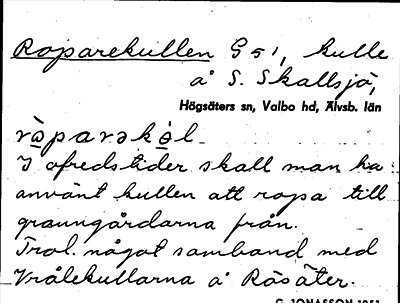 Roparekullen G 51, kulle
å S. Skallsjö,
Högsäters sn, Valbo hd, Älvsb. län
ròparəkòl
I ofredstider skall man ha
använt kullen att ropa till
granngårdarna från.
Trol. något samband med
Vrålekullarna å Rösäter.
G. JONASSON 1951